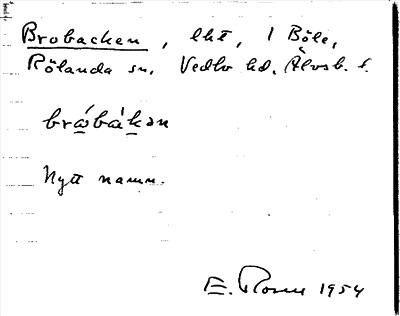 Brobacken, lht, 1 Böle,
Rölanda sn, Vedbo hd, Älvsb. l.
bròbákən
Nytt namn.
E. Rosen 1954